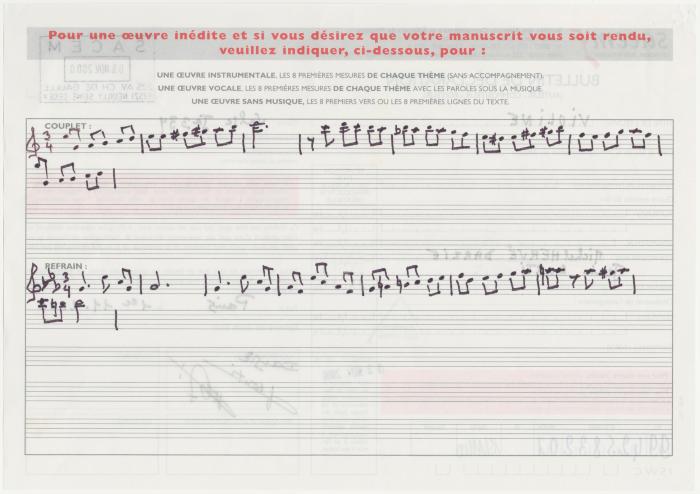 Pour une œuvre inédite et si vous désirez que votre manuscrit vous soit rendu,
veuillez indiquer, ci-dessous, pour :
UNE ŒUVRE INSTRUMENTALE, LES 8 PREMIÈRES MESURES DE CHAQUE THÈME (SANS ACCOMPAGNEMENT).
UNE ŒUVRE VOCALE, LES 8 PREMIÈRES MESURES DE CHAQUE THÈME AVEC LES PAROLES SOUS LA MUSIQUE.
UNE ŒUVRE SANS MUSIQUE, LES 8 PREMIERS VERS OU LES 8 PREMIÈRES LIGNES DU TEXTE.
COUPLET :
3
4
REFRAIN :
3
4